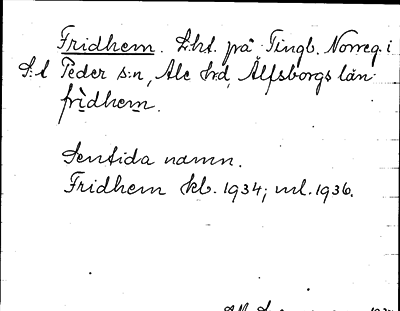 Fridhem. Lht. på Tingb. Norreg. i
S:t Peder s:n, Ale hd, Älfsborgs län.
frìdhem.
Sentida namn.
Fridhem kb. 1934; ml. 1936.